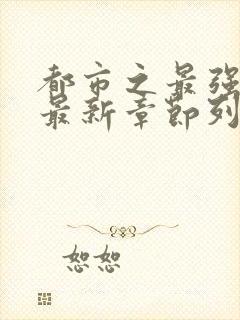 都市之最强
最新章节列
恕恕